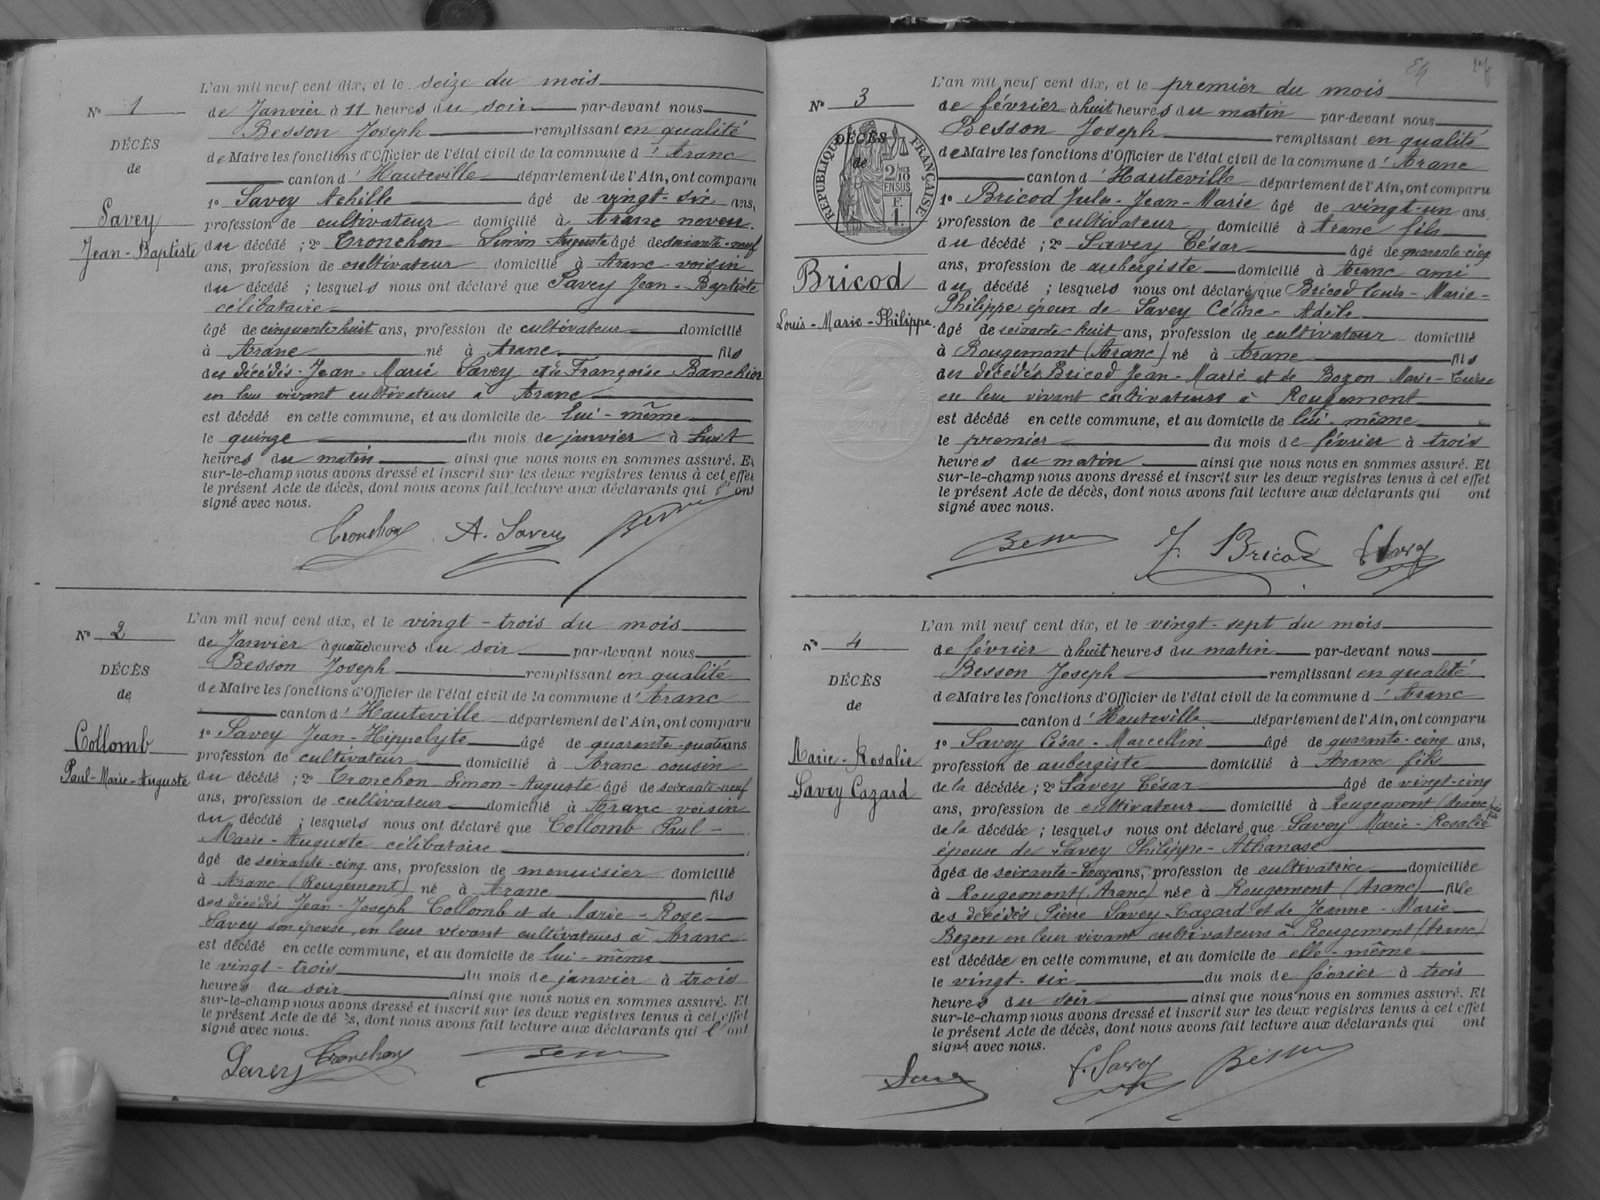 L'an mil neuf cent dix, et le seize du mois
N° 1
de Janvier à 11 heures du soir par-devant nous
Besson Joseph remplissant en qualité
DÉCÈS
de Maire les fonctions d'Officier de l'état civil de la commune d'Aranc
de
canton d'Hauteville département de l'Ain, ont comparu
1° Savey Achille âgé de vingt-six ans,
Savey
profession de cultivateur domicilié à Aranc neveu
Jean-Baptiste
du décédé ; 2° Tronchon Simon-Auguste âgé de soixante-neuf
ans, profession de cultivateur domicilié à Aranc voisin
du décédé ; lesquels nous ont déclaré que Savey Jean-Baptiste
célibataire
âgé de cinquante-huit ans, profession de cultivateur domicilié
à Aranc né à Aranc fils
des décédés Jean-Marie Savey et de Françoise Banchin
en leur vivant cultivateurs à Aranc
est décédé en cette commune, et au domicile de lui-même
le quinze du mois de janvier à huit
heures du matin ainsi que nous nous en sommes assuré. Et
sur-le-champ nous avons dressé et inscrit sur les deux registres tenus à cet effet
le présent Acte de décès, dont nous avons fait lecture aux déclarants qui l'ont
signé avec nous.
Tronchon A. Savey Besson
L'an mil neuf cent dix, et le vingt-trois du mois
N° 2
de Janvier à quatre heures du soir par-devant nous
Besson Joseph remplissant en qualité
DÉCÈS
de Maire les fonctions d'Officier de l'état civil de la commune d'Aranc
de
canton d'Hauteville département de l'Ain, ont comparu
1° Savey Jean-Hippolyte âgé de quarante-quatre ans
Collomb
profession de cultivateur domicilié à Aranc cousin
Paul-Marie-Auguste
du décédé ; 2° Tronchon Simon-Auguste âgé de soixante-neuf
ans, profession de cultivateur domicilié à Aranc voisin
du décédé ; lesquels nous ont déclaré que Collomb Paul-
Marie-Auguste célibataire
âgé de soixante-cinq ans, profession de menuisier domicilié
à Aranc (Rougemont) né à Aranc fils
des décédés Jean-Joseph Collomb et de Marie-Rose
Savey son épouse, en leur vivant cultivateurs à Aranc
est décédé en cette commune, et au domicile de lui-même
le vingt-trois du mois de janvier à trois
heures du soir ainsi que nous nous en sommes assuré. Et
sur-le-champ nous avons dressé et inscrit sur les deux registres tenus à cet effet
le présent Acte de décès, dont nous avons fait lecture aux déclarants qui l'ont
signé avec nous.
Savey Tronchon Besson
L'an mil neuf cent dix, et le premier du mois
N° 3
de février à huit heures du matin par-devant nous
Besson Joseph remplissant en qualité
DÉCÈS
de
RÉPUBLIQUE FRANÇAISE
2/10 EN SUS
F. 1
de Maire les fonctions d'Officier de l'état civil de la commune d'Aranc
canton d'Hauteville département de l'Ain, ont comparu
1° Bricod Jules-Jean-Marie âgé de vingt-un ans
profession de cultivateur domicilié à Aranc fils
du décédé ; 2° Savey César âgé de quarante-cinq
Bricod
ans, profession de aubergiste domicilié à Aranc ami
du décédé ; lesquels nous ont déclaré que Bricod Louis-Marie-
Louis-Marie-Philippe
Philippe époux de Savey Céline-Adèle
âgé de soixante-huit ans, profession de cultivateur domicilié
à Rougemont (Aranc) né à Aranc fils
des décédés Bricod Jean-Marie et de Bozon Marie-
en leur vivant cultivateurs à Rougemont
est décédé en cette commune, et au domicile de lui-même
le premier du mois de février à trois
heures du matin ainsi que nous nous en sommes assuré. Et
sur-le-champ nous avons dressé et inscrit sur les deux registres tenus à cet effet
le présent Acte de décès, dont nous avons fait lecture aux déclarants qui ont
signé avec nous.
Besson J. Bricod C. Savey
L'an mil neuf cent dix, et le vingt-sept du mois
N° 4
de février à huit heures du matin par-devant nous
Besson Joseph remplissant en qualité
DÉCÈS
de Maire les fonctions d'Officier de l'état civil de la commune d'Aranc
de
canton d'Hauteville département de l'Ain, ont comparu
1° Savey César-Marcellin âgé de quarante-cinq ans,
Marie-Rosalie
profession de aubergiste domicilié à Aranc fils
Savey Cazard
de la décédée ; 2° Savey César âgé de vingt-cinq
ans, profession de cultivateur domicilié à Rougemont (Aranc)
de la décédée ; lesquels nous ont déclaré que Savey Marie-Rosalie
épouse de Savey Philippe-Athanase
âgée de soixante- ans, profession de cultivatrice domiciliée
à Rougemont (Aranc) née à Rougemont (Aranc) fille
des décédés Pierre Savey-Cazard et de Jeanne-Marie
Bozon en leur vivant cultivateurs à Rougemont (Aranc)
est décédée en cette commune, et au domicile de elle-même
le vingt-six du mois de février à trois
heures du soir ainsi que nous nous en sommes assuré. Et
sur-le-champ nous avons dressé et inscrit sur les deux registres tenus à cet effet
le présent Acte de décès, dont nous avons fait lecture aux déclarants qui ont
signé avec nous.
Savey C. Savey Besson